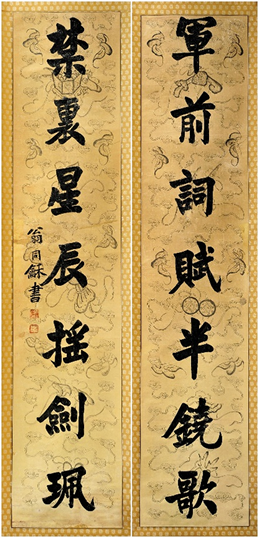 軍前詞賦半鐃歌
禁裏星辰摇劍珮
翁同龢書